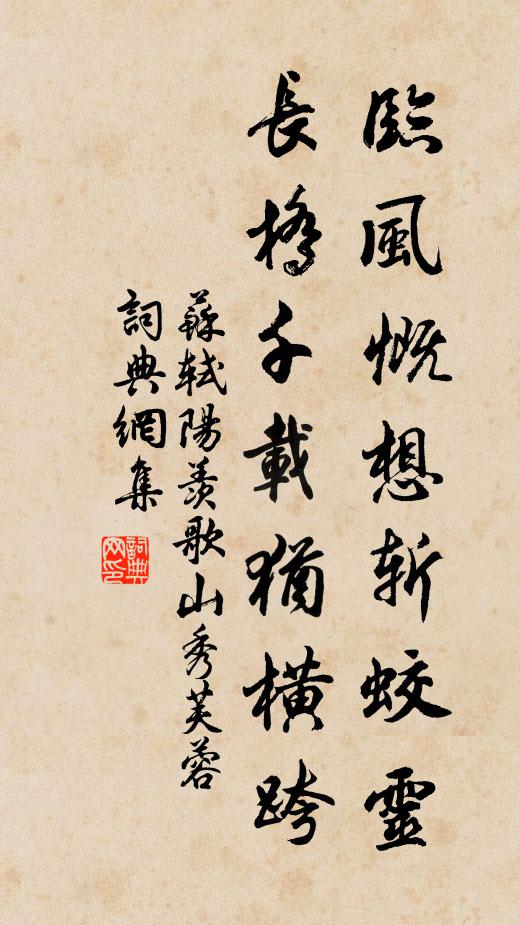 臨風慨想斬蛟靈
長橋千載猶橫跨
蘇軾陽羨歌山秀芙蓉
詞典網集
詞典
网印